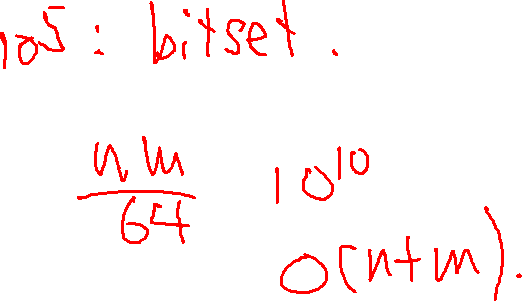 10^5 : bitset .
nm/64 10^10
O(n+m).